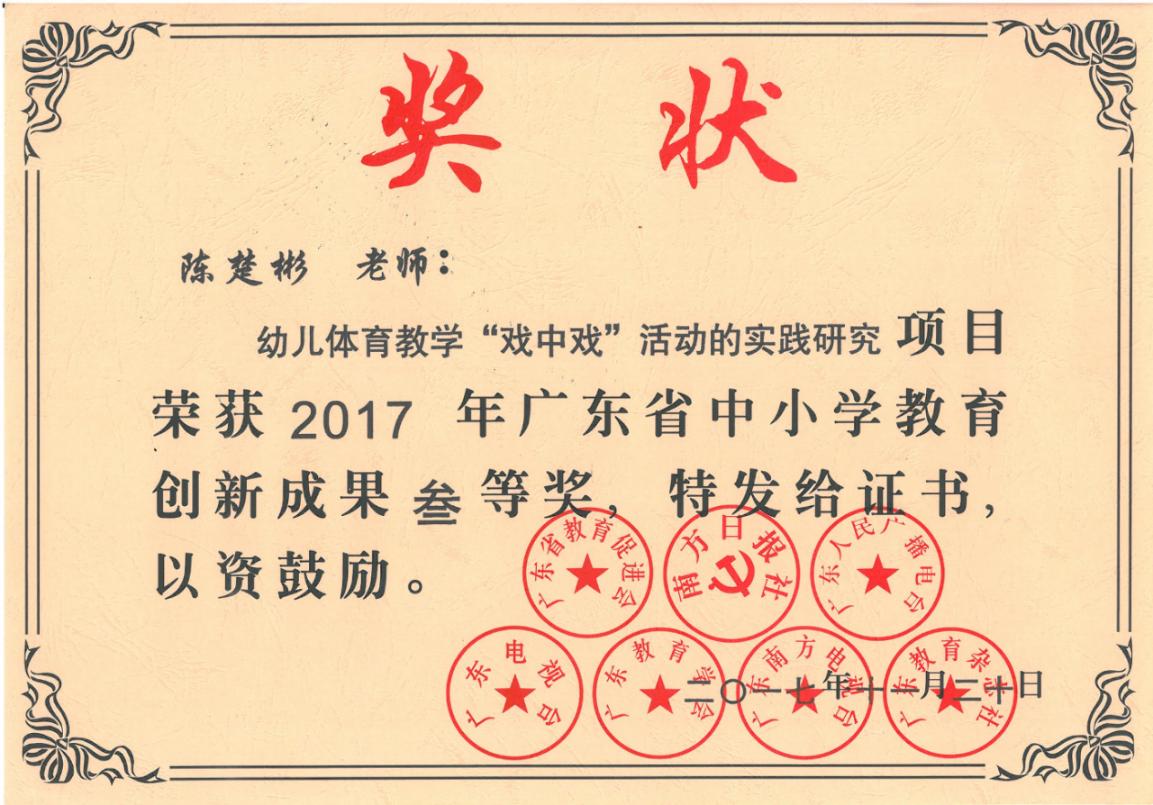 奖状
陈楚彬 老师：
幼儿体育教学“戏中戏”活动的实践研究 项目
荣获 2017 年广东省中小学教育
创新成果 叁 等奖，特发给证书，
以资鼓励。
广东省教育促进会
南方日报社
广东人民广播电台
广东电视台
广东教育学会
广东南方电视台
广东教育杂志社
二〇一七年十一月二十日